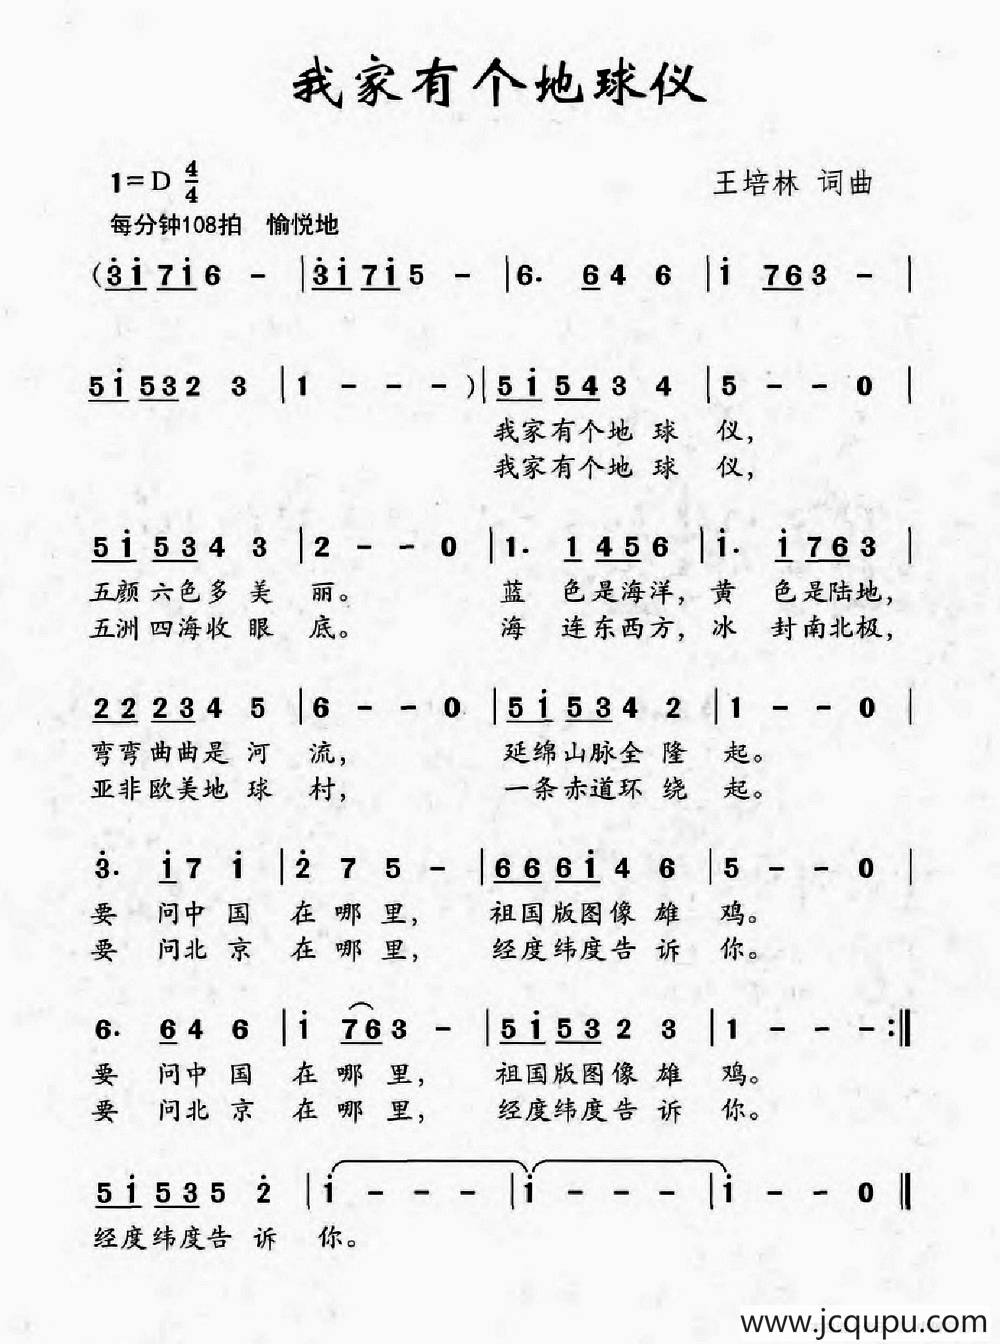 我家有个地球仪
1=D 4/4
王培林 词曲
每分钟108拍 愉悦地
(3̇i̇7i̇6 - | 3̇i̇7i̇5 - | 6. 6 4 6 | i̇ 763 - |
5i̇ 532 3 | 1 - - - )| 5i̇ 543 4 | 5 - - 0 |
我家有个地 球 仪,
我家有个地 球 仪,
5i̇ 534 3 | 2 - - 0 | 1. 1456 | i̇. i̇763 |
五颜六色多 美 丽。 蓝 色是海洋, 黄 色是陆地,
五洲四海收 眼 底。 海 连东西方, 冰 封南北极,
22 234 5 | 6 - - 0 | 5i̇ 534 2 | 1 - - 0 |
弯弯曲曲是 河 流, 延绵山脉全 隆 起。
亚非欧美地 球 村, 一条赤道环 绕 起。
3̇. i̇7 i̇ | 2̇ 7 5 - | 666i̇ 4 6 | 5 - - 0 |
要 问中 国 在 哪 里, 祖国版图像 雄 鸡。
要 问北 京 在 哪 里, 经度纬度告 诉 你。
6. 64 6 | i̇ 763 - | 5i̇532 3 | 1 - - - :‖
要 问中 国 在 哪 里, 祖国版图像 雄 鸡。
要 问北 京 在 哪 里, 经度纬度告 诉 你。
5i̇ 535 2̇ | i̇ - - - | i̇ - - - | i̇ - - 0 ‖
经度纬度告 诉 你。
www.jcqupu.com